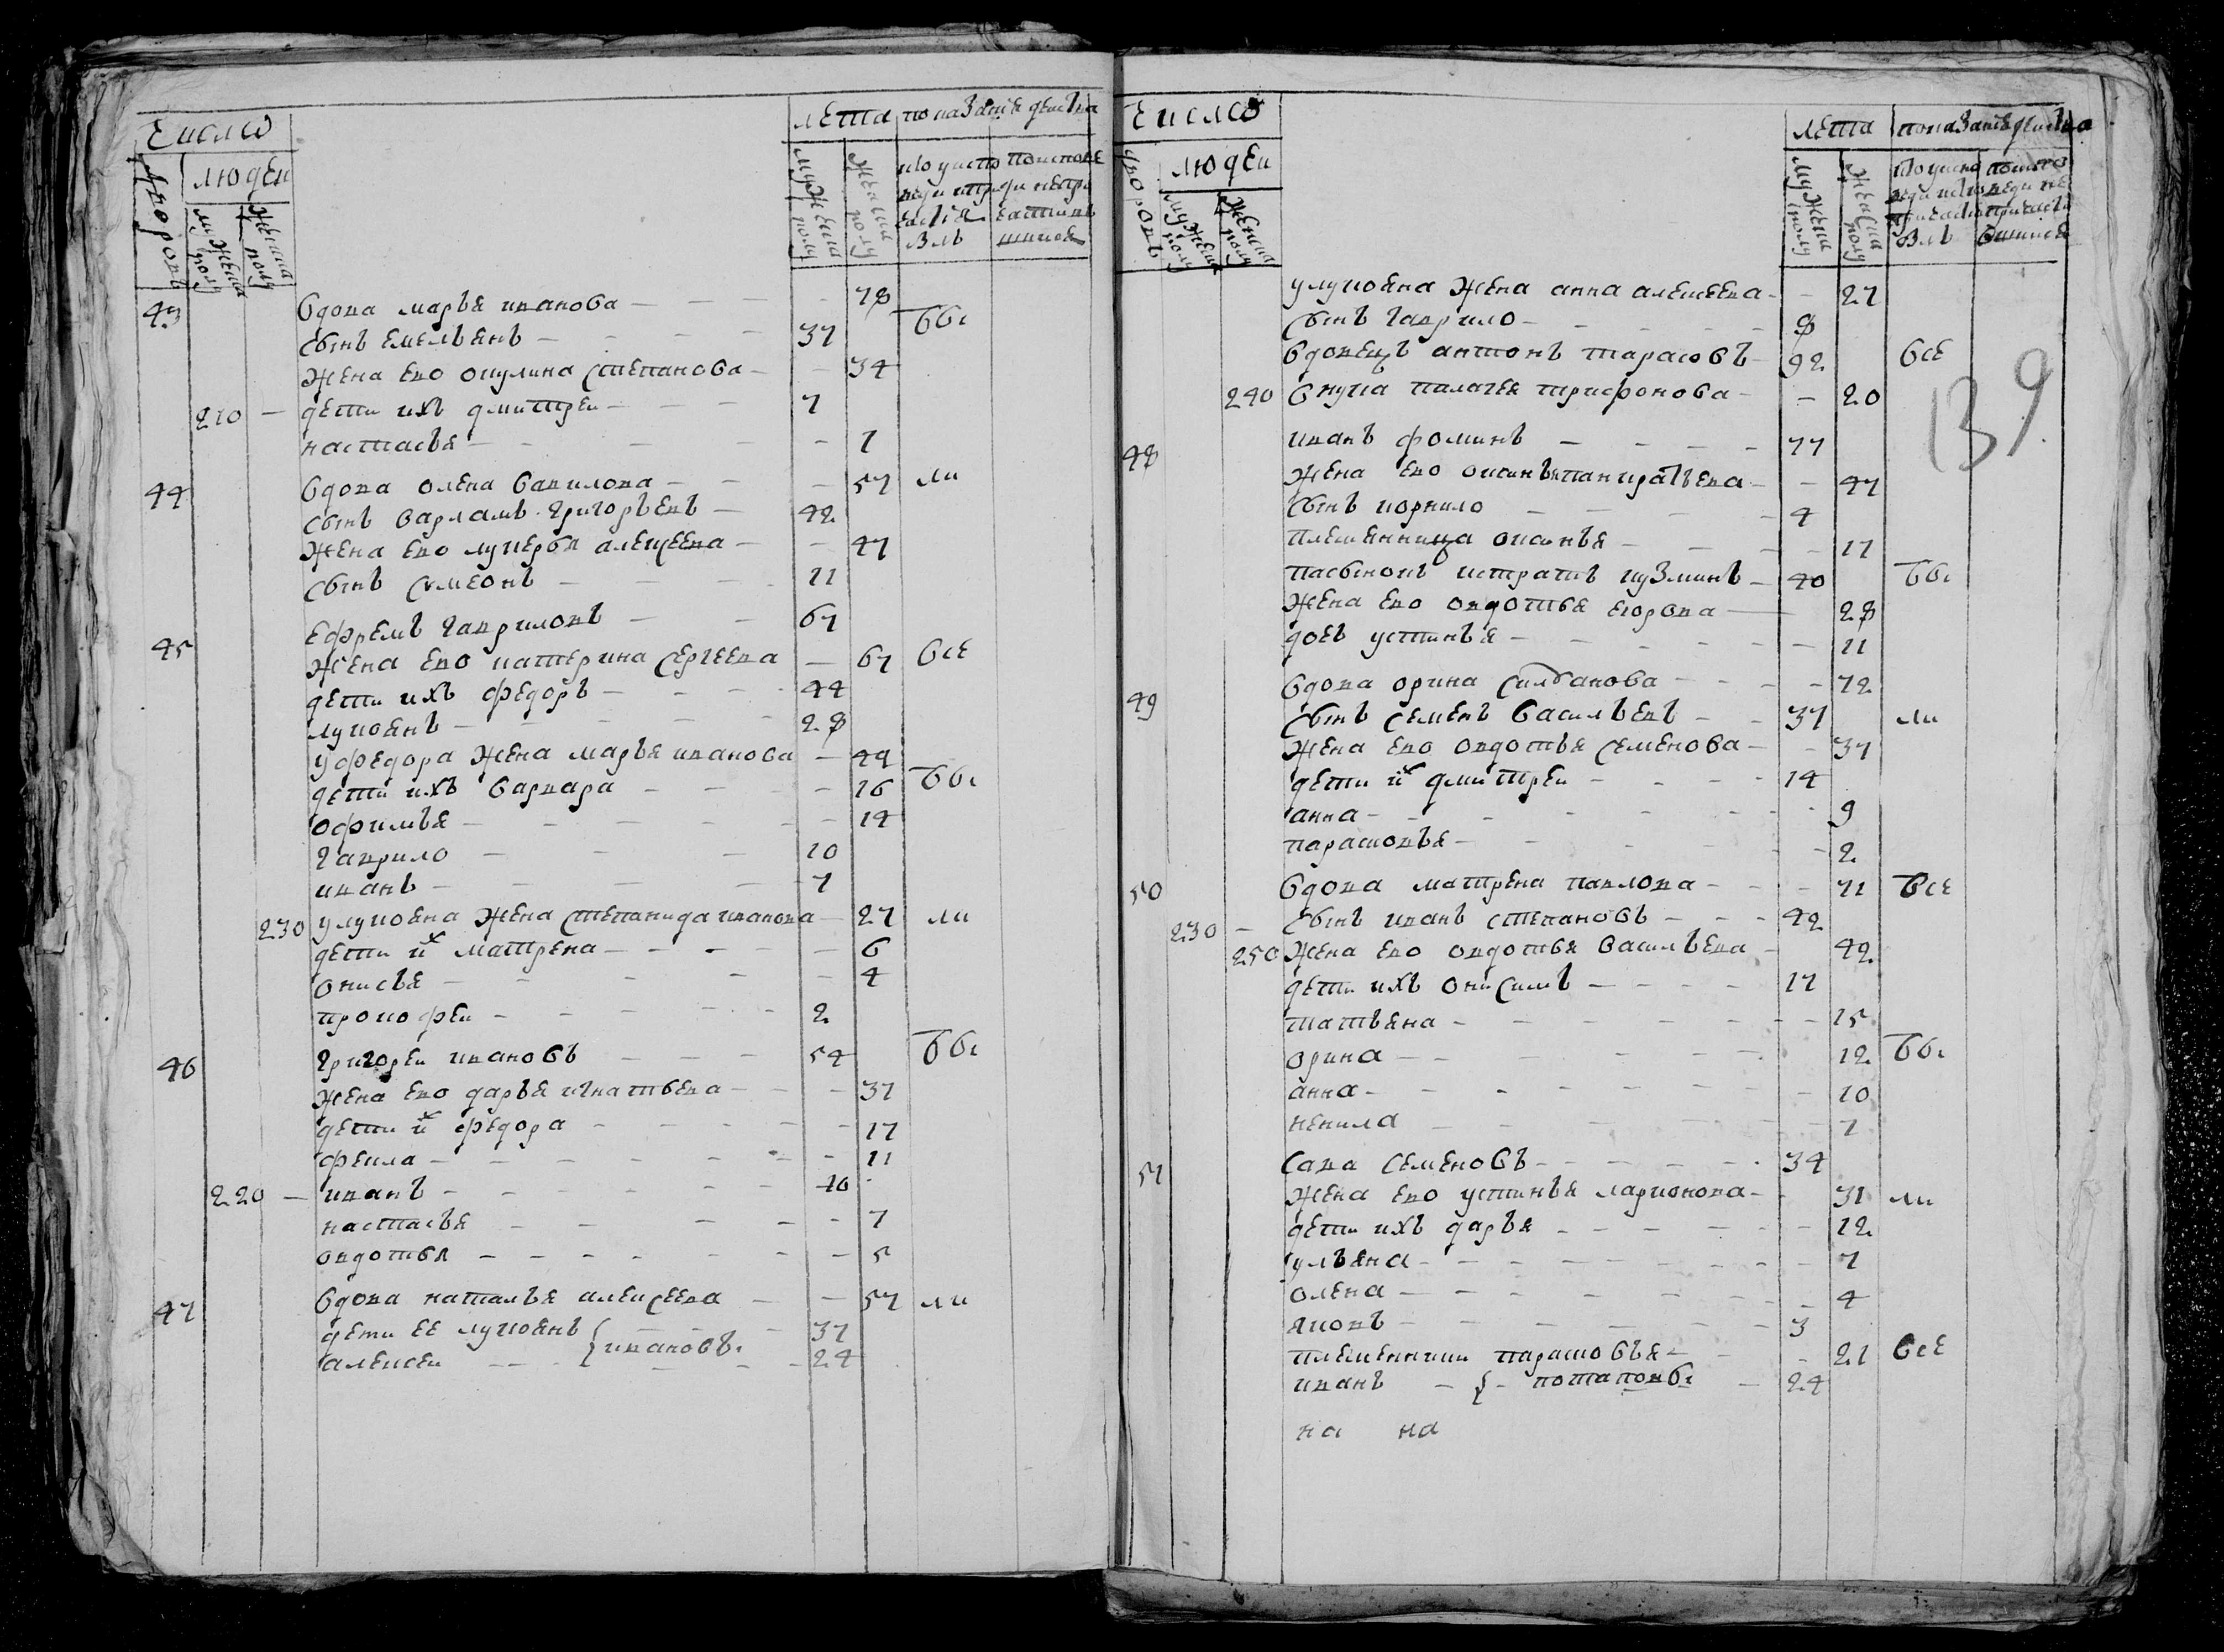 Число
лета показание действа
людеи
дворовъ
мужеска полу
женска полу
мужеска полу
женска полу
43 вдова марья иванова 78
сынъ емельянъ 37 бы
жена ево окулина степанова 34
210 дети ихъ дмитреи 7
настасья 7
44 вдова олена вавилова 57 ли
сынъ варламъ григорьевъ 42
жена ево лукерья алексеева 47
сынъ сѵмеонъ 11
45 ефремъ гавриловъ 67
жена ево катерина сергеева 67 все
дети ихъ федоръ 44
лукоянъ 28
у федора жена марья иванова 44
дети ихъ варвара 16 бы
офимья 14
гаврило 10
иванъ 7
230 у лукояна жена степанида иванова 27 ли
дети их матрена 6
онисья 4
прокофеи 2
46 григореи ивановъ 54 бы
жена ево дарья игнатьева 37
дети их федора 17
фекла 11
220 иванъ 10
настасья 7
овдотья 5
47 вдова наталья алексеева 57 ли
дети ее лукоянъ { ивановы 37
алексеи 24
Число
лета показание действа
людеи
дворовъ
мужеска полу
женска полу
мужеска полу
женска полу
у лукояна жена анна алексеева 27
сынъ гаврило 8
вдовецъ антонъ тарасовъ 92 все
240 внука палагея трифонова 20
139
48 иванъ фоминъ 77
жена ево оксинья панкратьева 47
сынъ корнило 4
племянница оксинья 17
пасынокъ истратъ кузминъ 40 бы
жена ево овдотья егорова 28
дочь устинья 11
49 вдова орина силванова 72
сынъ семенъ васильевъ 37 ли
жена ево овдотья семенова 37
дети их дмитреи 14
анна 9
парасковья 2
50 вдова матрена павлова 71 все
230 сынъ иванъ степановъ 42
250 жена ево овдотья васильева 42
дети ихъ онисимъ 17
татьяна 15
орина 12 бы
анна 10
ненила 7
51 сава семеновъ 34
жена ево устинья ларионова 31 ли
дети ихъ дарья 12
ульяна 7
олена 4
яковъ 3
племенники парасковья 21 все
иванъ { потаповы 24
на на